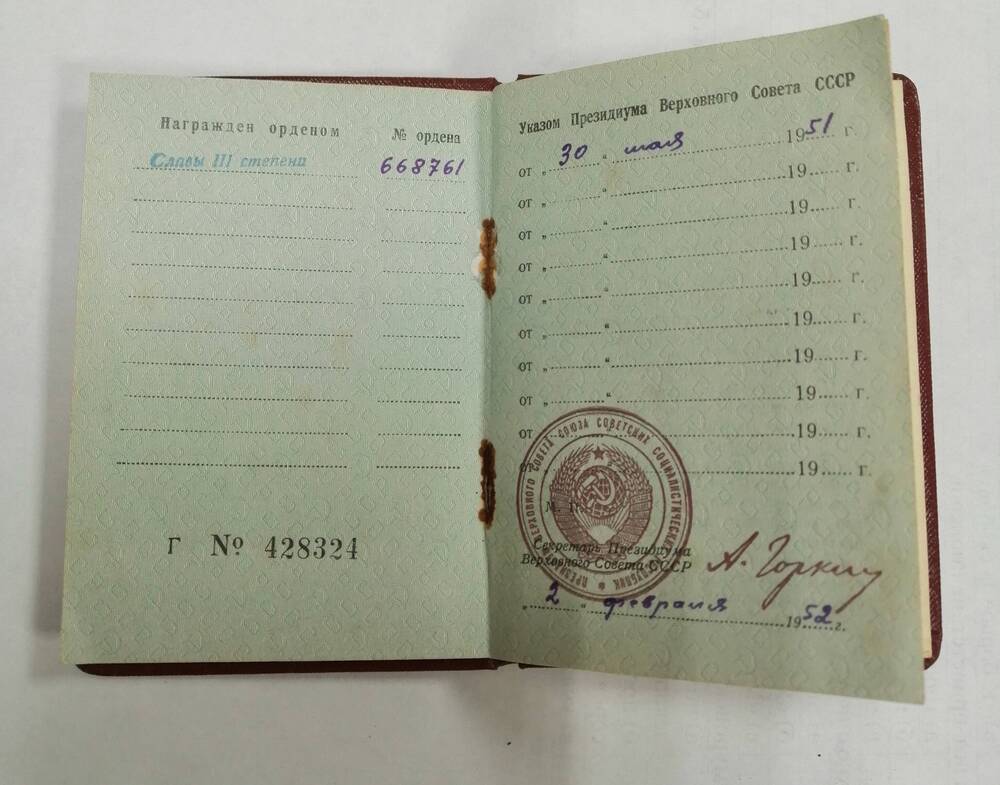 Награжден орденом № ордена
Славы III степени 668761
Г № 428324
Указом Президиума Верховного Совета СССР
от „30“ мая 1951 г.
от „ “ 19 г.
от „ “ 19 г.
от „ “ 19 г.
от „ “ 19 г.
от „ “ 19 г.
от „ “ 19 г.
от „ “ 19 г.
от „ “ 19 г.
от „ “ 19 г.
ПРЕЗИДИУМ ВЕРХОВНОГО СОВЕТА СОЮЗА СОВЕТСКИХ СОЦИАЛИСТИЧЕСКИХ РЕСПУБЛИК
М. П.
Секретарь Президиума
Верховного Совета СССР А. Горкин
„2“ февраля 1952 г.